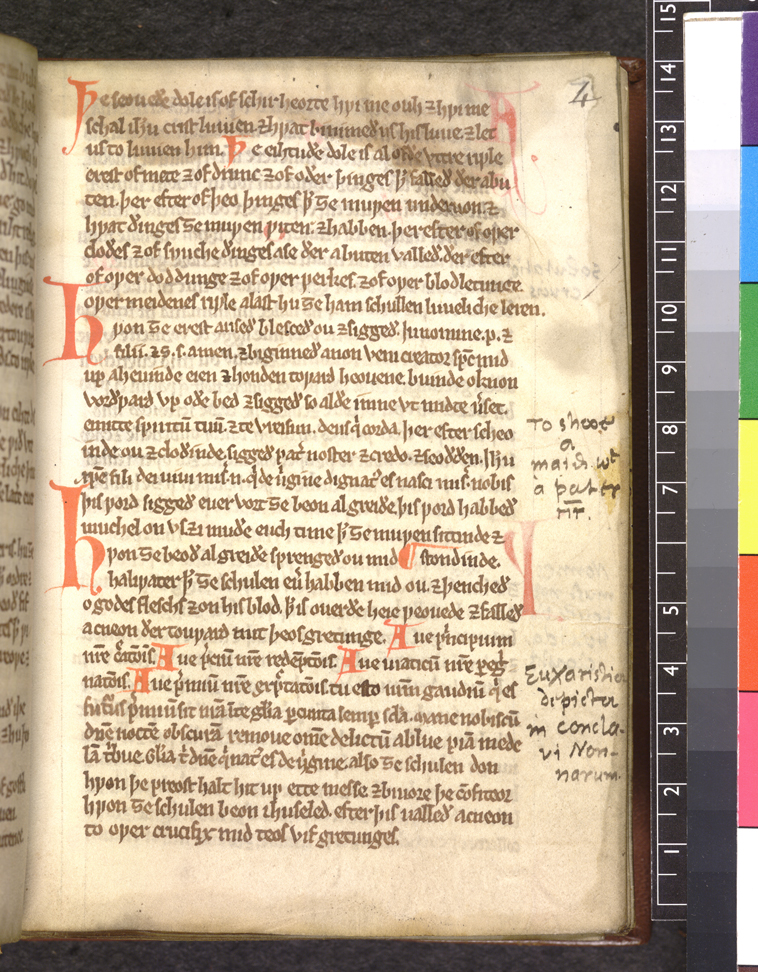 4
Þe seoueðe dole is of schir heorte hƿi me ouh ⁊ hƿi me
schal ihu crist luuien. ⁊ hƿat binimeð us his luue. ⁊ let
us to luuien him. Þe eihtuðe dole is al of ðe vttre riƿle
erest of mete ⁊ of drunc ⁊ of oðer þinges þ̷ falleð ðer abu
ten. þer efter of þeo þinges þ̷ ȝe muƿen underuon. ⁊
hƿat ðinges ȝe muƿen ƿiten. ⁊ habben. þer efter of oƿer
cloðes ⁊ of sƿuche ðinges ase ðer abuten valleð. ðer efter
of oƿer doddunge ⁊ of oƿer ƿerkes. ⁊ of oƿer blodletunge.
oƿer meidenes riƿle alast hu ȝe ham schullen luueliche leren.
Hƿon ȝe erest ariseð blesceð ou ⁊ siggeð. In nomine. p. ⁊
filii. ⁊ s. s. amen. ⁊ biginneð anon veni creator spc̄ mid
up aheuinde eien ⁊ honden toƿard heouene. buinde o kneon
vorðƿard up o ðe bed ⁊ siggeð so al ðe imne vt mid te u̾set.
emitte spiritū tuū. ⁊ te oreisun. deus q̇ corda. þer efter scheo
inde ou ⁊ cloðinde siggeð pat̾ noster ⁊ credo. ⁊ seoððen. Ihu
xp̄e fili dei uiui mis̾. n. q̇ de u̾gine dignat̾ es nasci mis̾. nobis
þis ƿord siggeð euer vort ȝe beon al greiðe. þis ƿord habbeð
muchel on vs ⁊ i muðe euch time þ̷ ȝe muƿen sittinde ⁊
stondinde.
Hƿon ȝe beoð al greiðe sprengeð ou mid
haliƿater þ̷ ȝe schulen eu̾ habben mid ou. ⁊ þencheð
o godes flesche ⁊ on his blod. þ̷ is ouer ðe heie ƿeouede ⁊ falleð
acneon ðer touƿard mit þeos gretunge. Aue p̾ncipium
nr̄e c̾ atōis. Aue p̾ciū nr̄e redēptōis. Aue uiaticū nr̄e peg̾
natōis. Aue p̾miū nr̄e exp̄ctatōis. tu esto nr̄m gaudiū q̇ es
futur̾ p̾miū sit nr̄a ī te gl̄ia ꝑ cuncta semꝑ sc̄la. mane nobiscū
dn̄e noctē obscurā remoue om̄e delictū ablue piā mede
lā t̾bue. Gl̄ia t̾ dn̄e q̇ nat̾ es de u̾gine. also ȝe schulen don
hƿon þe preost halt hit up ette messe ⁊ biuore þe cōfiteor
hƿon ȝe schulen beon ihuseled. efter þis ualleð acneon
to oƿer crucifix mid teos vif gretunges.
To sheoe
a
maid. wt
a pater
nr.
Euxaristia
depicta
in concla-
vi Non-
narum.
15
14
13
12
11
10
9
8
7
6
5
4
3
2
1